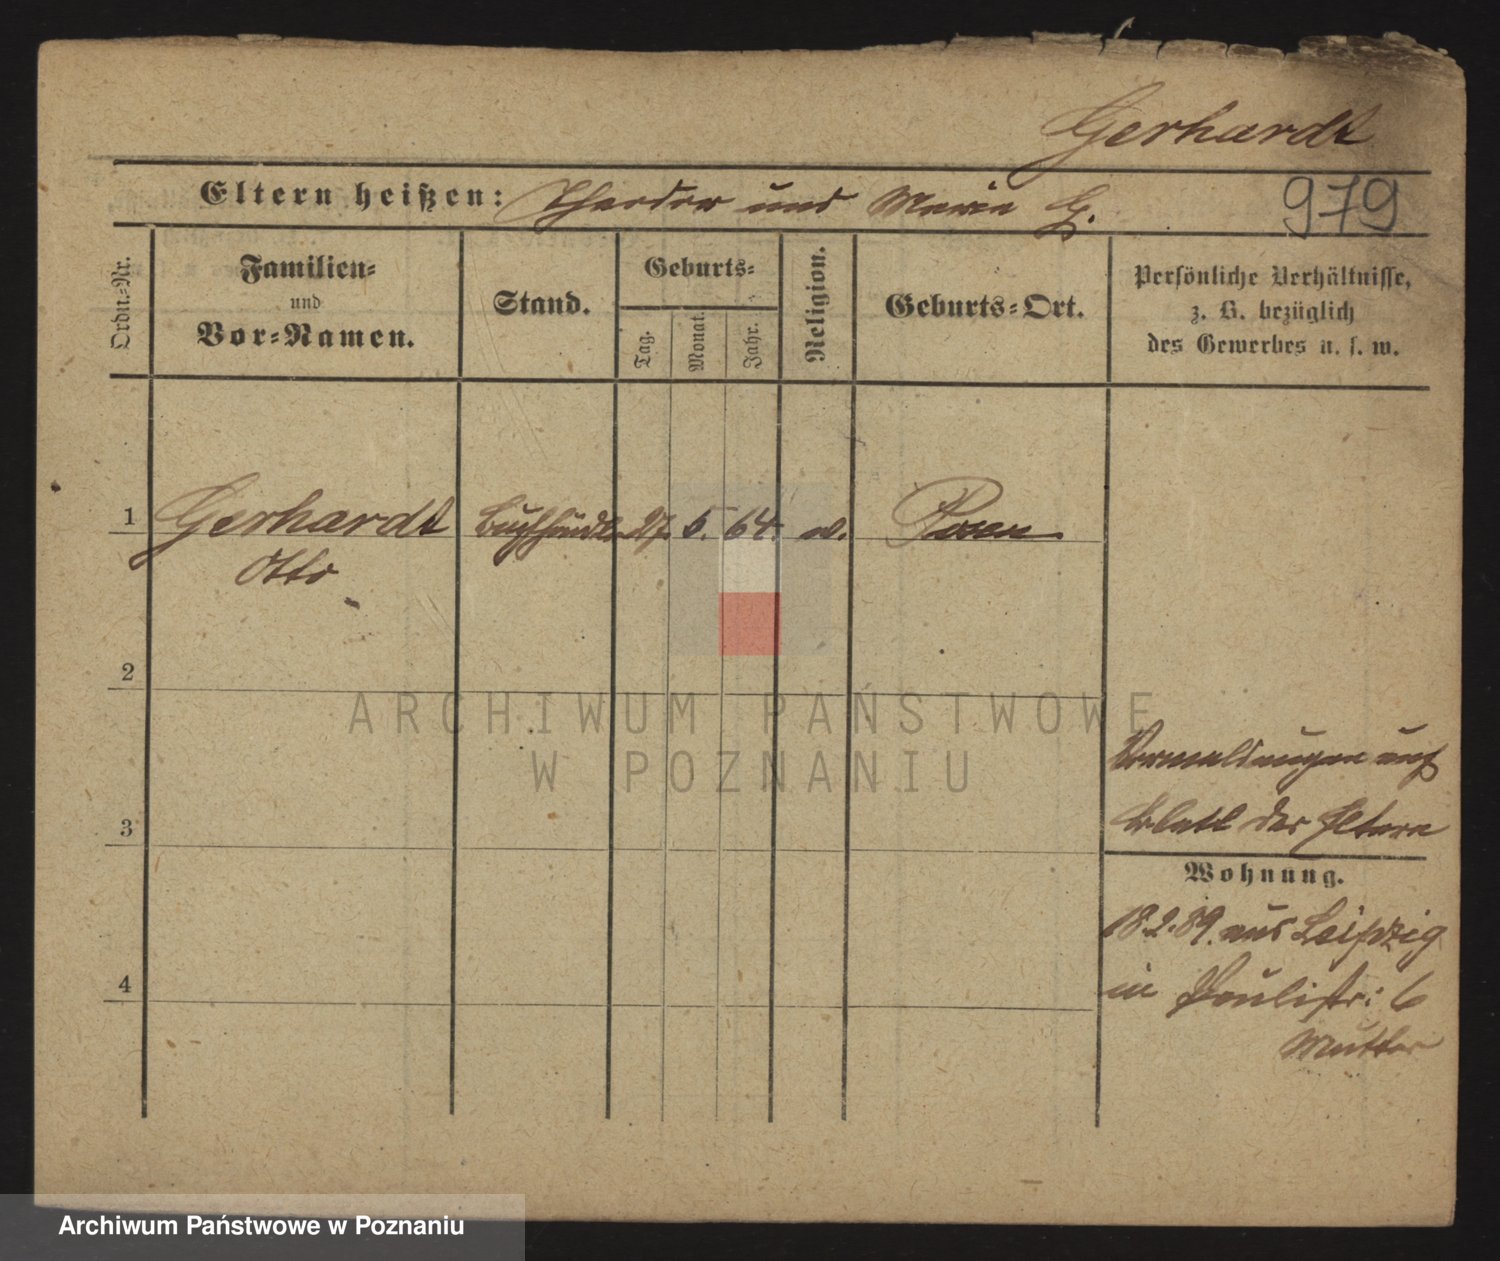 Gerhardt
Eltern heißen: Theodor und Marie G.
979
Ordn.-Nr.
Familien-
und
Vor-Namen.
Stand.
Geburts-
Tag.
Monat.
Jahr.
Religion.
Geburts-Ort.
Persönliche Verhältnisse,
z. B. bezüglich
des Gewerbes u. s. w.
1
Gerhardt
Otto
Buchhändl.
27. 5. 64.
ev.
Posen
2
ARCHIWUM PAŃSTWOWE
W POZNANIU
3
Vermeldungen auf
Blatt der Eltern
Wohnung.
18.2.89. aus Leipzig
in Paulistr: 6
Mutter
4
Archiwum Państwowe w Poznaniu